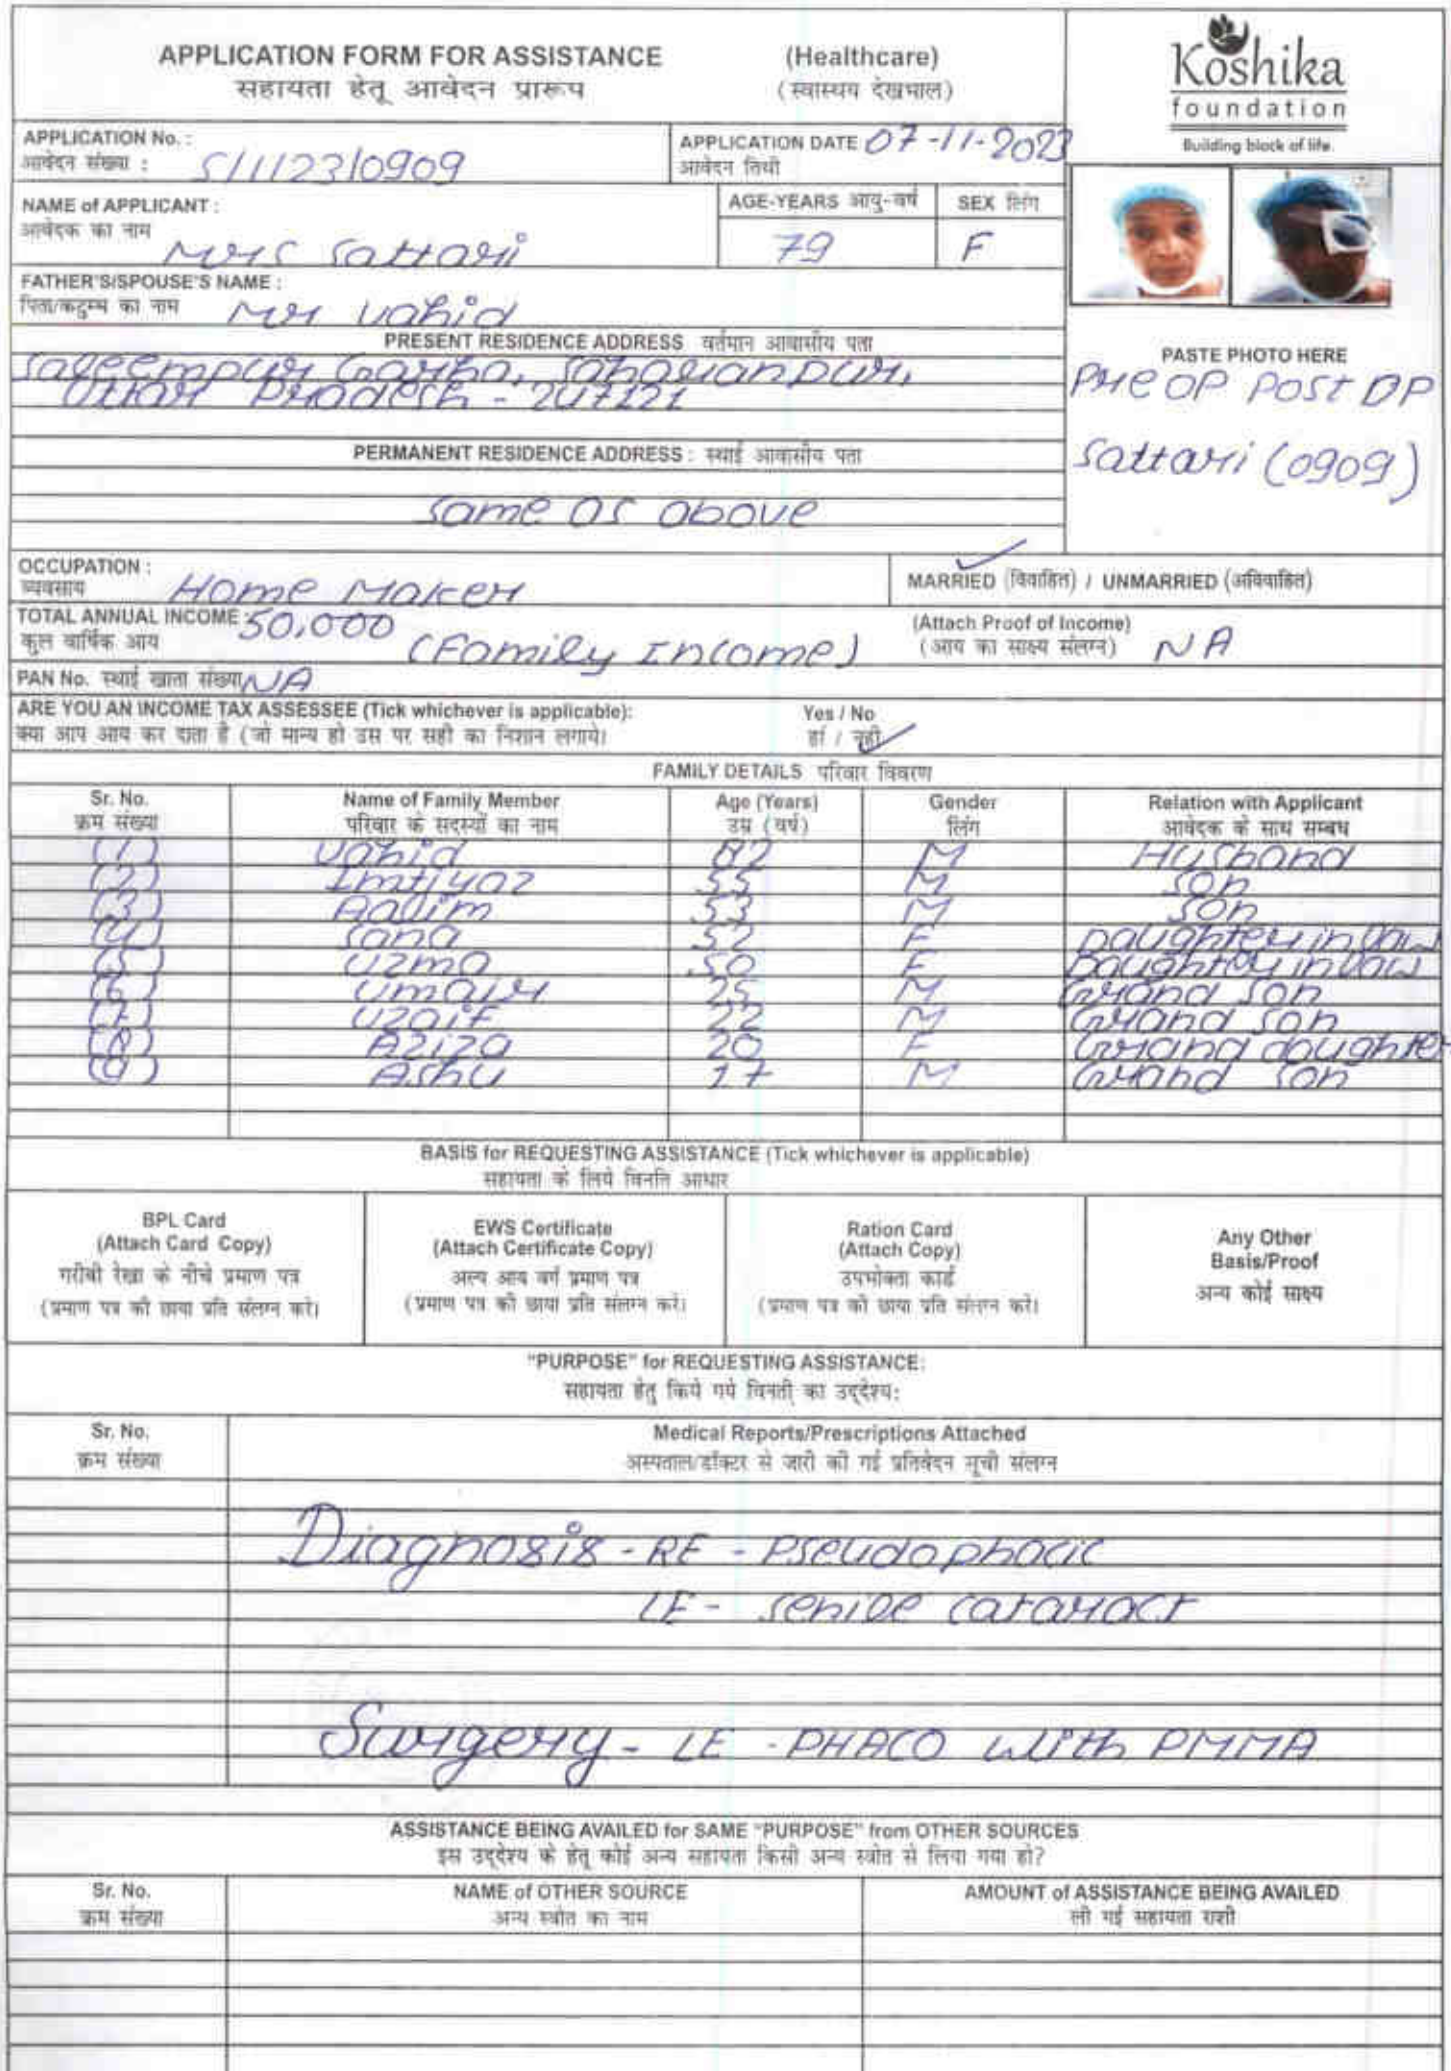 APPLICATION FORM FOR ASSISTANCE (Healthcare)
सहायता हेतू आवेदन प्रारूप (स्वास्थय देखभाल)
Koshika
foundation
Building block of life.
APPLICATION No. :
आवेदन संख्या : S/1123/0909
APPLICATION DATE 07-11-2023
आवेदन तिथी
NAME of APPLICANT :
आवेदक का नाम Mrs Sattari
AGE-YEARS आयु-वर्ष
79
SEX लिंग
F
FATHER'S/SPOUSE'S NAME :
पिता/कटुम्ब का नाम Mr Vahid
PRESENT RESIDENCE ADDRESS वर्तमान आवासीय पता
Saleempur Garha, Saharanpur,
Uttar Pradesh - 247121
PASTE PHOTO HERE
Pre OP Post OP
Sattari (0909)
PERMANENT RESIDENCE ADDRESS : स्थाई आवासीय पता
Same as above
OCCUPATION :
व्यवसाय Home Maker
MARRIED (विवाहित) / UNMARRIED (अविवाहित)
TOTAL ANNUAL INCOME : 50,000
कुल वार्षिक आय (Family Income)
(Attach Proof of Income)
(आय का साक्ष्य संलग्न) NA
PAN No. स्थाई खाता संख्या NA
ARE YOU AN INCOME TAX ASSESSEE (Tick whichever is applicable): Yes / No
क्या आप आय कर दाता है (जो मान्य हो उस पर सही का निशान लगाये। हां / नहीं
FAMILY DETAILS परिवार विवरण
Sr. No. Name of Family Member Age (Years) Gender Relation with Applicant
क्रम संख्या परिवार के सदस्यों का नाम उम्र (वर्ष) लिंग आवेदक के साथ सम्बध
(1) Vahid 82 M Husband
(2) Imtiyaz 55 M Son
(3) Aalim 53 M Son
(4) Sana 52 F Daughter in law
(5) Uzma 50 F Daughter in law
(6) Umair 25 M Grand son
(7) Uzaif 22 M Grand son
(8) Aziza 20 F Grand daughter
(9) Ashu 17 M Grand son
BASIS for REQUESTING ASSISTANCE (Tick whichever is applicable)
सहायता के लिये विनति आधार
BPL Card
(Attach Card Copy)
गरीबी रेखा के नीचे प्रमाण पत्र
(प्रमाण पत्र की छाया प्रति संलग्न करे।
EWS Certificate
(Attach Certificate Copy)
अल्प आय वर्ग प्रमाण पत्र
(प्रमाण पत्र की छाया प्रति संलग्न करे।
Ration Card
(Attach Copy)
उपभोक्ता कार्ड
(प्रमाण पत्र की छाया प्रति संलग्न करे।
Any Other
Basis/Proof
अन्य कोई साक्ष्य
"PURPOSE" for REQUESTING ASSISTANCE:
सहायता हेतु किये गये विनती का उद्देश्य:
Sr. No. Medical Reports/Prescriptions Attached
क्रम संख्या अस्पताल/डॉक्टर से जारी की गई प्रतिवेदन सूची संलग्न
Diagnosis - RE - Pseudophacic
LE - Senile cataract
Surgery - LE - PHACO with PMMA
ASSISTANCE BEING AVAILED for SAME "PURPOSE" from OTHER SOURCES
इस उद्देश्य के हेतू कोई अन्य सहायता किसी अन्य स्त्रोत से लिया गया हो?
Sr. No. NAME of OTHER SOURCE AMOUNT of ASSISTANCE BEING AVAILED
क्रम संख्या अन्य स्त्रोत का नाम ली गई सहायता राशी